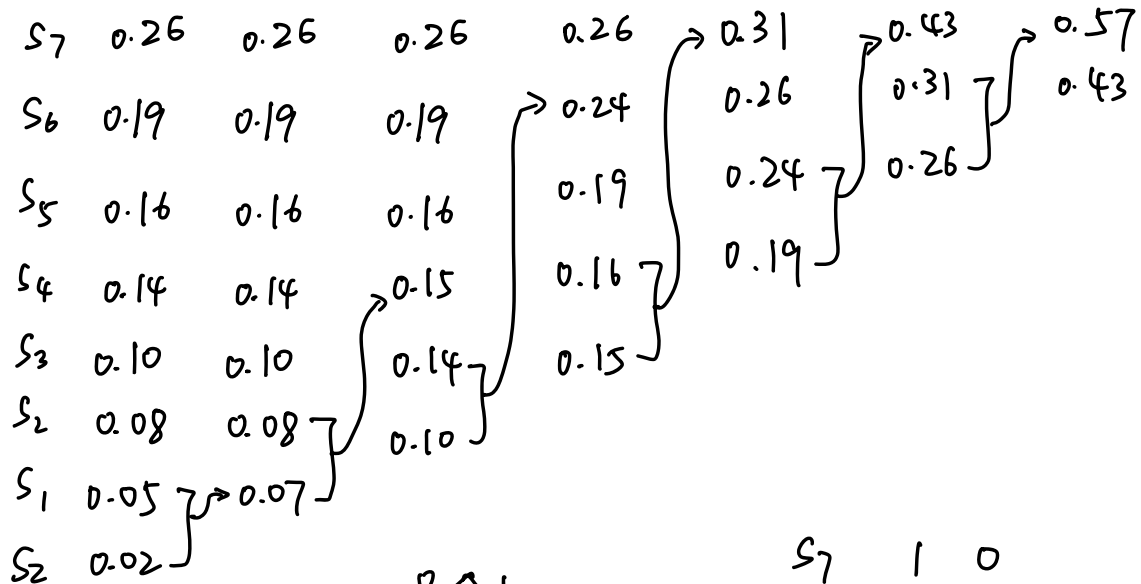 S7 0.26 0.26 0.26 0.26 0.31 0.43 0.57
S6 0.19 0.19 0.19 0.24 0.26 0.31 0.43
S5 0.16 0.16 0.16 0.19 0.24 0.26
S4 0.14 0.14 0.15 0.16 0.19
S3 0.10 0.10 0.14 0.15
S2 0.08 0.08 0.10
S1 0.05 0.07
S2 0.02
S7 1 0